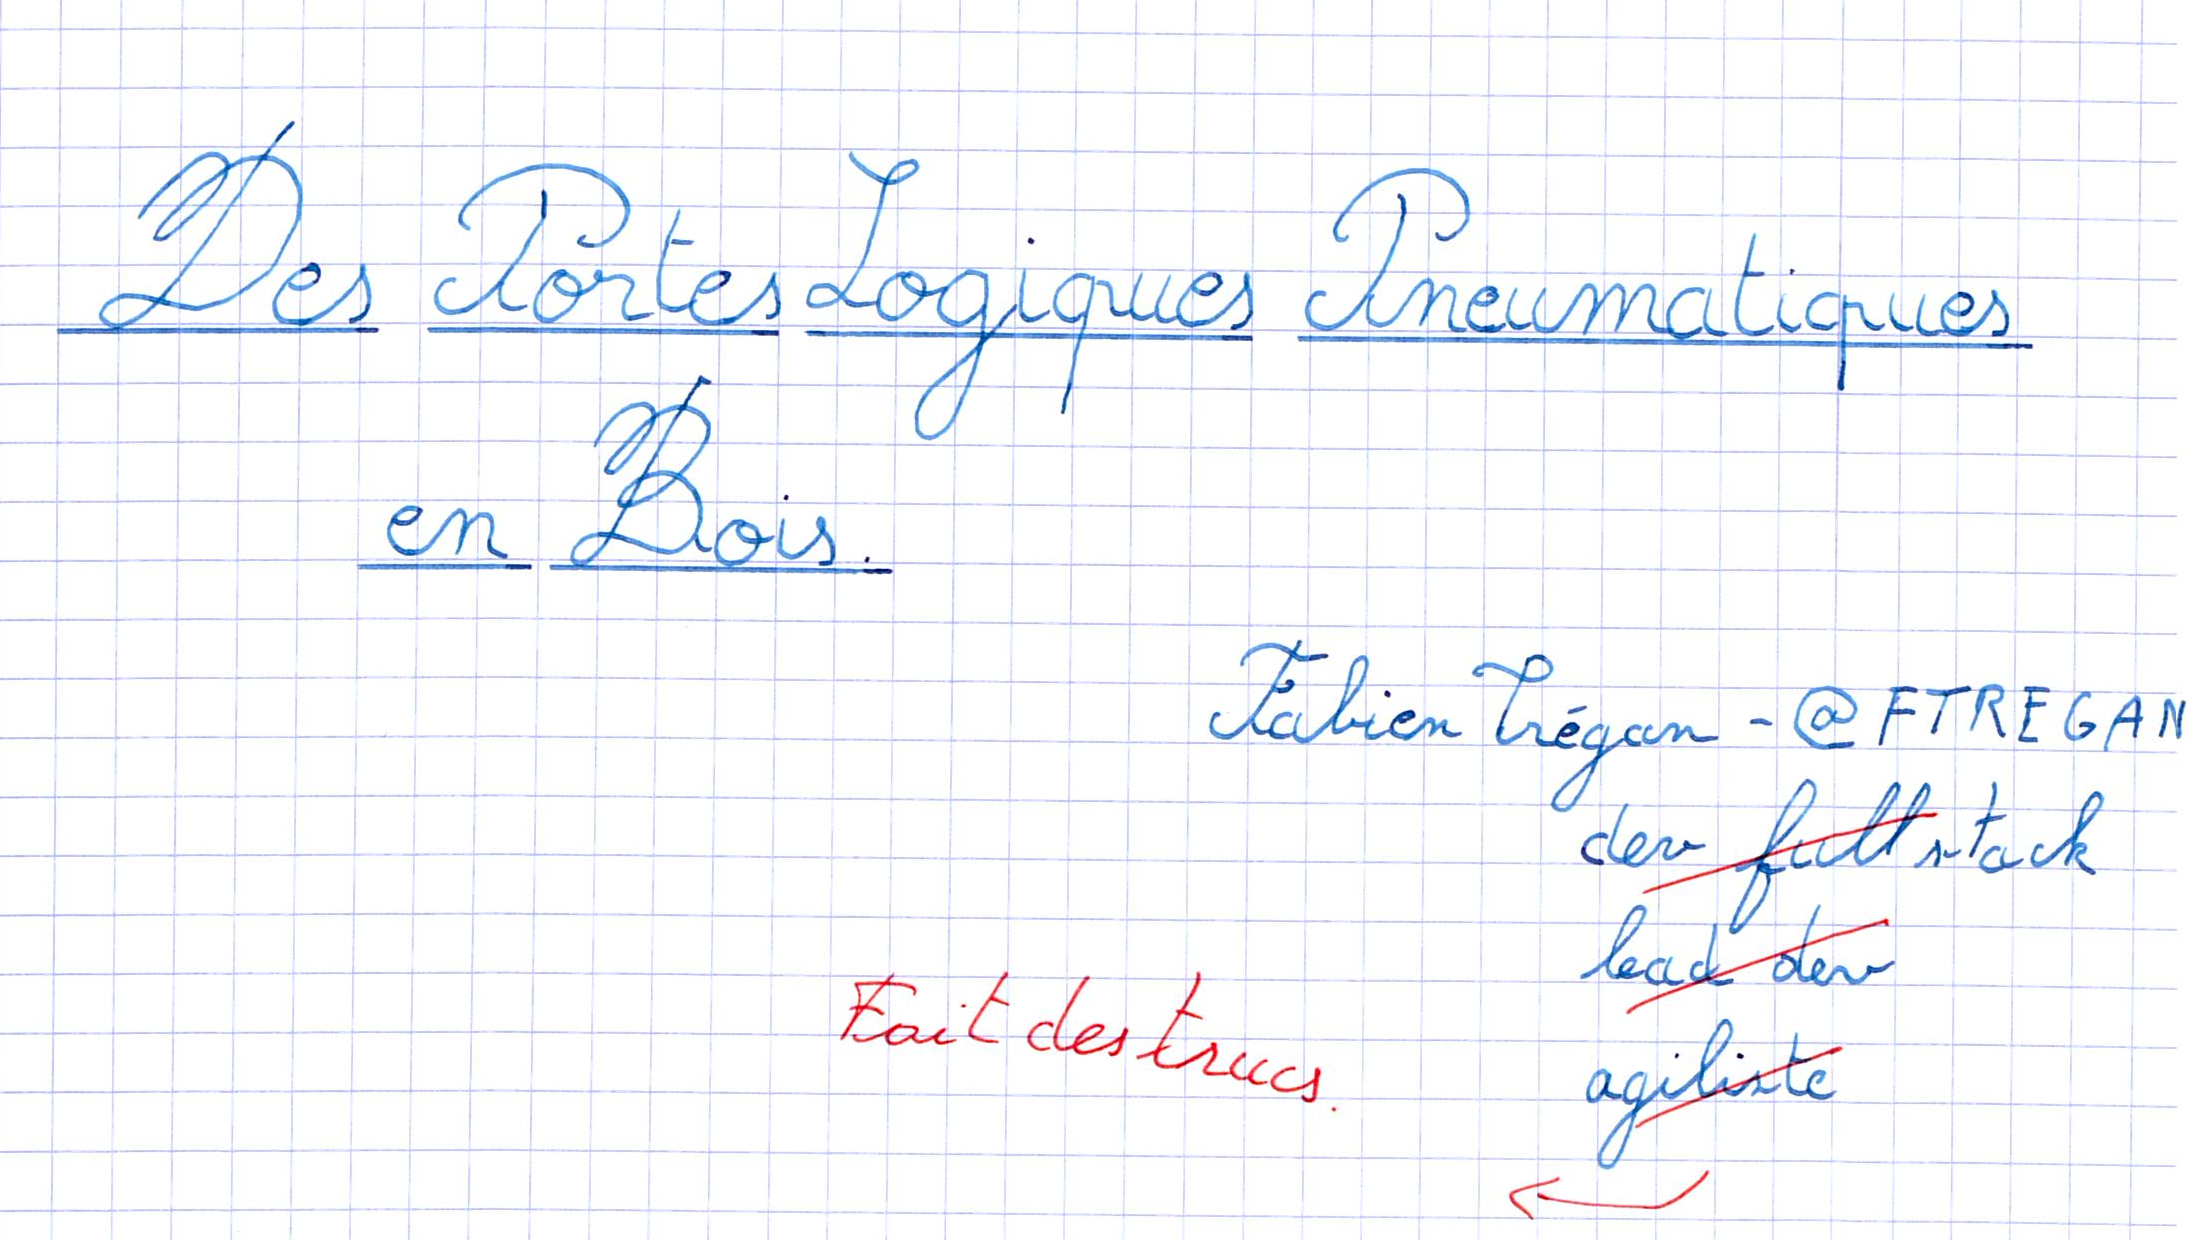 Des Portes Logiques Pneumatiques
en Bois.
Fabien Trégan - @FTREGAN
dev fullstack
lead dev
agiliste
Fait des trucs.